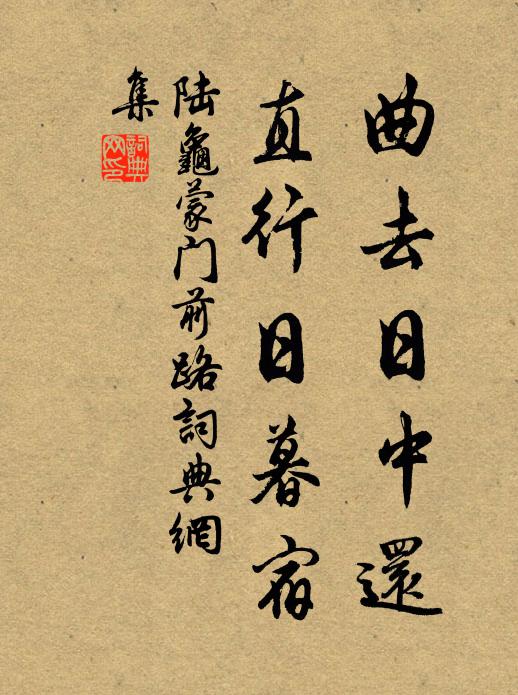 曲去日中還
直行日暮宿
陆龜蒙门前路詞典網
集
詞典網印